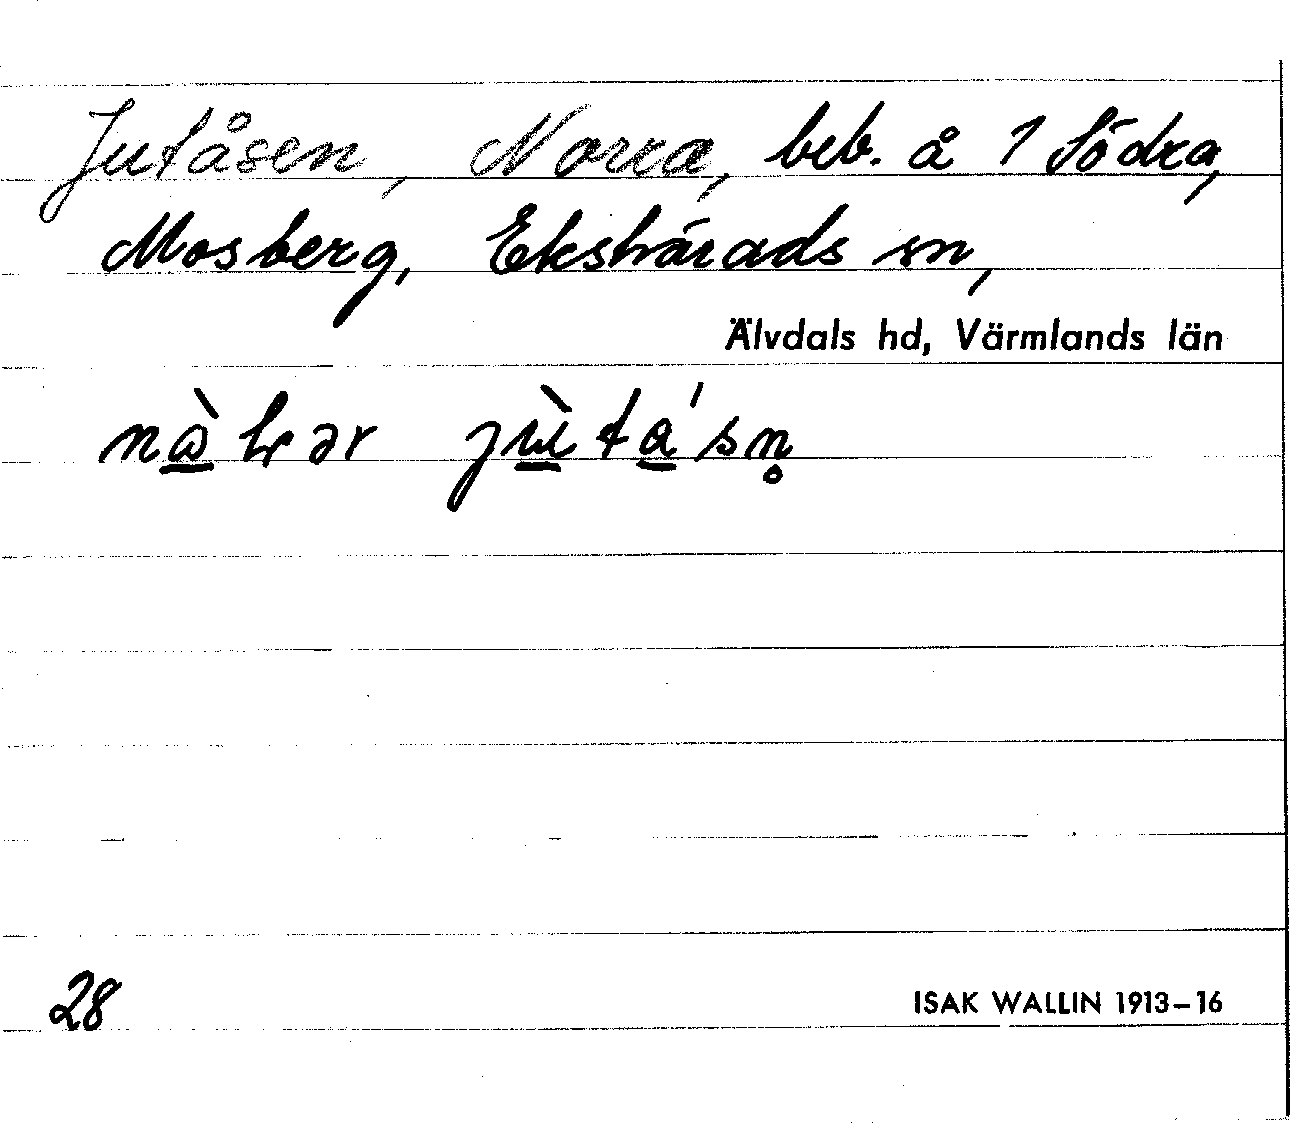 Jutåsen, Norra, beb. å 1 Södra,
Mosberg, Ekshärads sn,
Älvdals hd, Värmlands län
28
ISAK WALLIN 1913–16